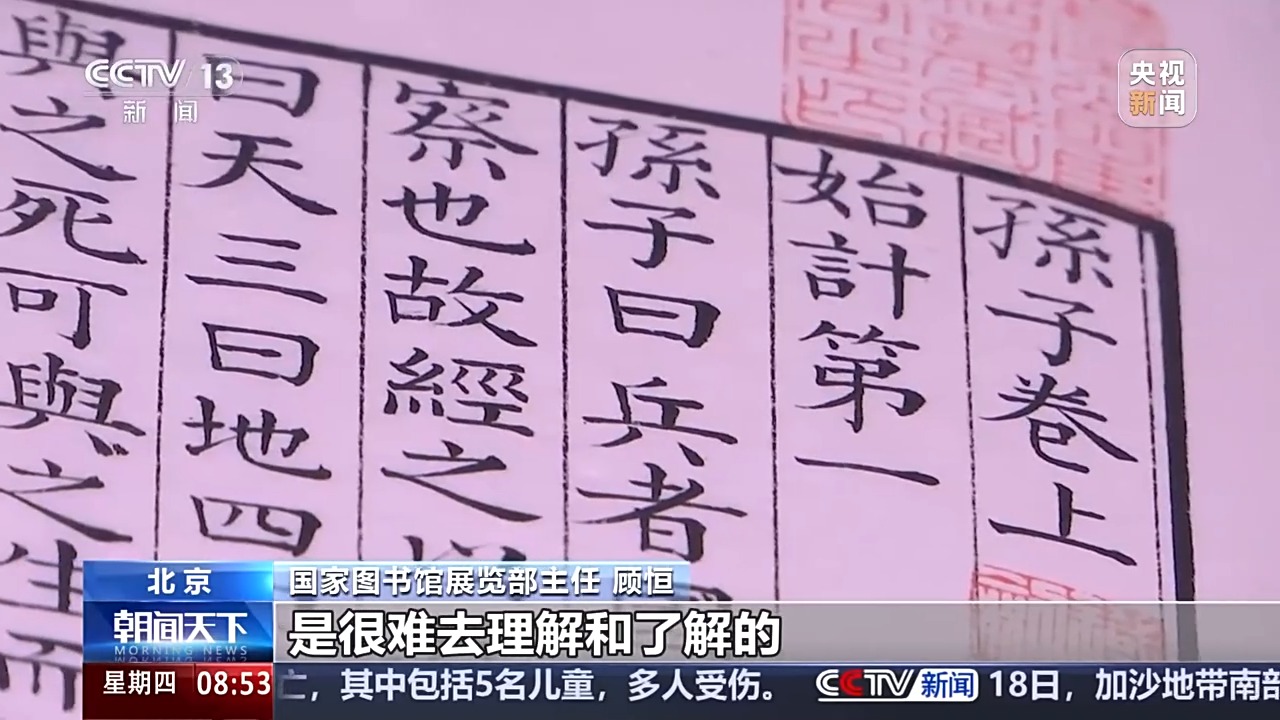 CCTV 13
新闻
央视
新闻
孫子卷上
始計第一
孫子曰兵者
察也故經之
曰天三曰地四
與之死可與之生而
北京
国家图书馆展览部主任 顾恒
朝闻天下
MORNING NEWS
是很难去理解和了解的
星期四 08:53
亡，其中包括5名儿童，多人受伤。 CCTV新闻 18日，加沙地带南部